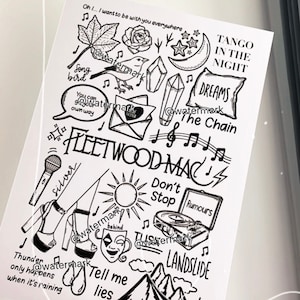 Oh I... I want to be with you everywhere
TANGO
IN THE
NIGHT
@watermark
Song
bird
DREAMS
You can
go your
own way
@watermark
@watermark
The Chain
FLEETWOOD MAC
silver
Don't
Stop
rumours
@watermark
TUSK
@watermark
LANDSLIDE
Thunder
only happens
when it's raining
@watermark
Tell me
lies
@watermark